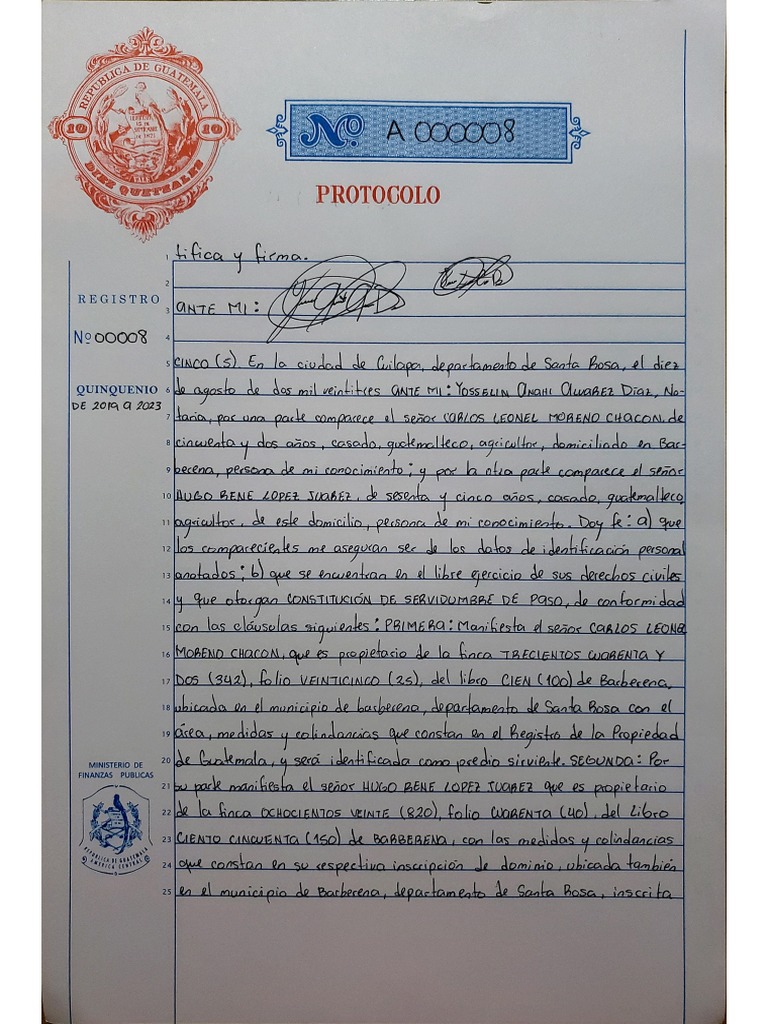 REPUBLICA DE GUATEMALA
10 10
DIEZ QUETZALES
Nº A 000008
PROTOCOLO
REGISTRO
Nº 00008
QUINQUENIO
DE 2019 a 2023
1 tifica y firma.
2
3 ANTE MI:
4
5 CINCO (5). En la ciudad de Cuilapa, departamento de Santa Rosa, el diez
6 de agosto de dos mil veintitres ANTE MI: YOSSELIN ANAHI ALVAREZ DIAZ, No-
7 taria, por una parte comparece el señor CARLOS LEONEL MORENO CHACON, de
8 cincuenta y dos años, casado, guatemalteco, agricultor, domiciliado en Bar-
9 berena, persona de mi conocimiento; y por la otra parte comparece el señor
10 HUGO RENE LOPEZ JUAREZ, de sesenta y cinco años, casado, guatemalteco,
11 agricultor, de este domicilio, persona de mi conocimiento. Doy fe: a) que
12 los comparecientes me aseguran ser de los datos de identificación personal
13 anotados; b) que se encuentran en el libre ejercicio de sus derechos civiles
14 y que otorgan CONSTITUCIÓN DE SERVIDUMBRE DE PASO, de conformidad
15 con las cláusulas siguientes: PRIMERA: Manifiesta el señor CARLOS LEONEL
16 MORENO CHACON, que es propietario de la finca TRECIENTOS CUARENTA Y
17 DOS (342), folio VEINTICINCO (25), del libro CIEN (100) de Barberena,
18 ubicada en el municipio de barberena, departamento de Santa Rosa con el
19 área, medidas y colindancias que constan en el Registro de la Propiedad
20 de Guatemala, y será identificada como predio sirviente. SEGUNDA: Por
21 su parte manifiesta el señor HUGO RENE LOPEZ JUAREZ que es propietario
22 de la finca OCHOCIENTOS VEINTE (820), folio CUARENTA (40), del Libro
23 CIENTO CINCUENTA (150) de BARBERENA, con las medidas y colindancias
24 que constan en su respectiva inscripción de dominio, ubicada también
25 en el municipio de Barberena, departamento de Santa Rosa, inscrita
MINISTERIO DE
FINANZAS PUBLICAS
REPUBLICA DE GUATEMALA
AMERICA CENTRAL